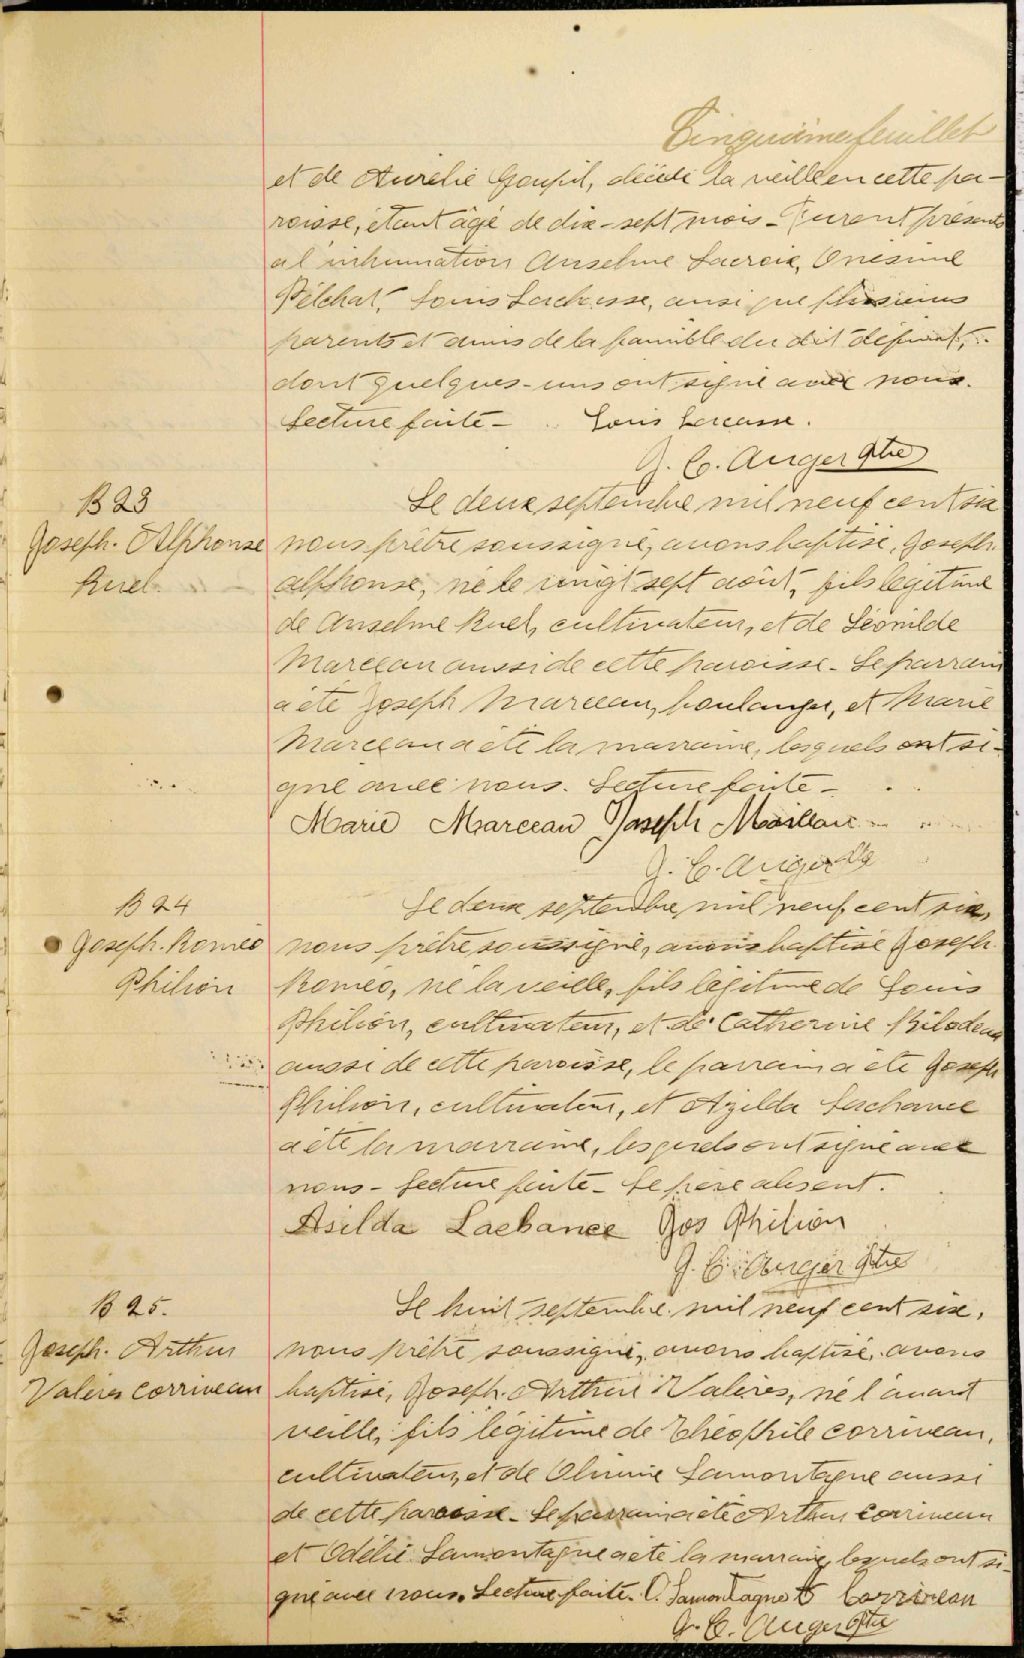 Cinquième feuillet
et de Aurélie Goupil, décédé la veille en cette pa-
roisse, étant âgé de dix-sept mois - Furent présents
a l'inhumation Anselme Lacroix, Onésime
Pelchat, Louis Lachasse, ansi que plusieurs
parents et amis de la famille du dit défunt,
dont quelques-uns ont signé avec nous.
Lecture faite - Louis Lacasse.
J. C. Auger Ptre
B 23
Joseph. Alphonse
Ruel
Le deux septembre mil neuf cent six
nous prêtre soussigné, avons baptisé, Joseph
alphonse, né le vingt sept août, fils légitime
de Anselme Ruel, cultivateur, et de Léonilde
Marceau aussi de cette paroisse - Le parrain
a été Joseph Marceau, boulanger, et Marie
Marceau a été la marraine, lesquels ont si-
gné avec nous. Lecture faite -
Marie Marceau Joseph
J. C. Auger Ptre
B 24
Joseph. Roméo
Philion
Le deux septembre mil neuf cent six,
nous prêtre soussigné, avons baptisé Joseph
Roméo, né la veille, fils légitime de Louis
Philion, cultivateur, et de Catherine Bilodeau
aussi de cette paroisse, le parrain a été Joseph
Philion, cultivateur, et Azilda Lachance
a été la marraine, lesquels ont signé avec
nous - Lecture faite - Le père absent.
Asilda Lachance Jos Philion
J. C. Auger Ptre
B 25.
Joseph. Arthur
Valères Corriveau
Le huit septembre mil neuf cent six,
nous prêtre soussigné, avons baptisé, avons
baptisé, Joseph Arthur Valères, né l'avant
veille, fils légitime de Théophile Corriveau,
cultivateur, et de Olivine Lamontagne aussi
de cette paroisse - Le parrain a été Arthur Corriveau
et Odélie Lamontagne a été la marraine, lesquels ont si-
gné avec nous. Lecture faite. O. Lamontagne Corriveau
J. C. Auger Ptre